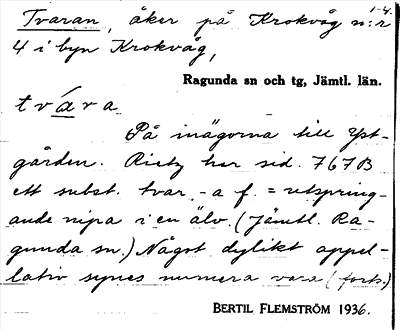 1-4.
Tvaran, åker på Krokvåg n:r
4 i byn Krokvåg,
Ragunda sn och tg, Jämtl. län.
tvára
På inägorna till Yst-
gården. Rietz har sid. 767B
ett subst. tvar, -a f. = utspring-
ande nipa i en älv. (Jämtl. Ra-
gunda sn.) Något dylikt appel-
lativ synes numera vara (forts.)
BERTIL FLEMSTRÖM 1936.